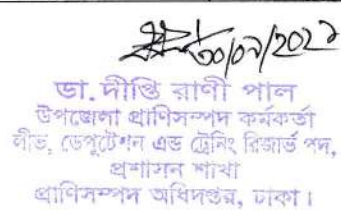 ৩০/০৭/২০২১
ডা. দীপ্তি রাণী পাল
উপজেলা প্রাণিসম্পদ কর্মকর্তা
লীভ, ডেপুটেশন এন্ড ট্রেনিং রিজার্ভ পদ,
প্রশাসন শাখা
প্রাণিসম্পদ অধিদপ্তর, ঢাকা।